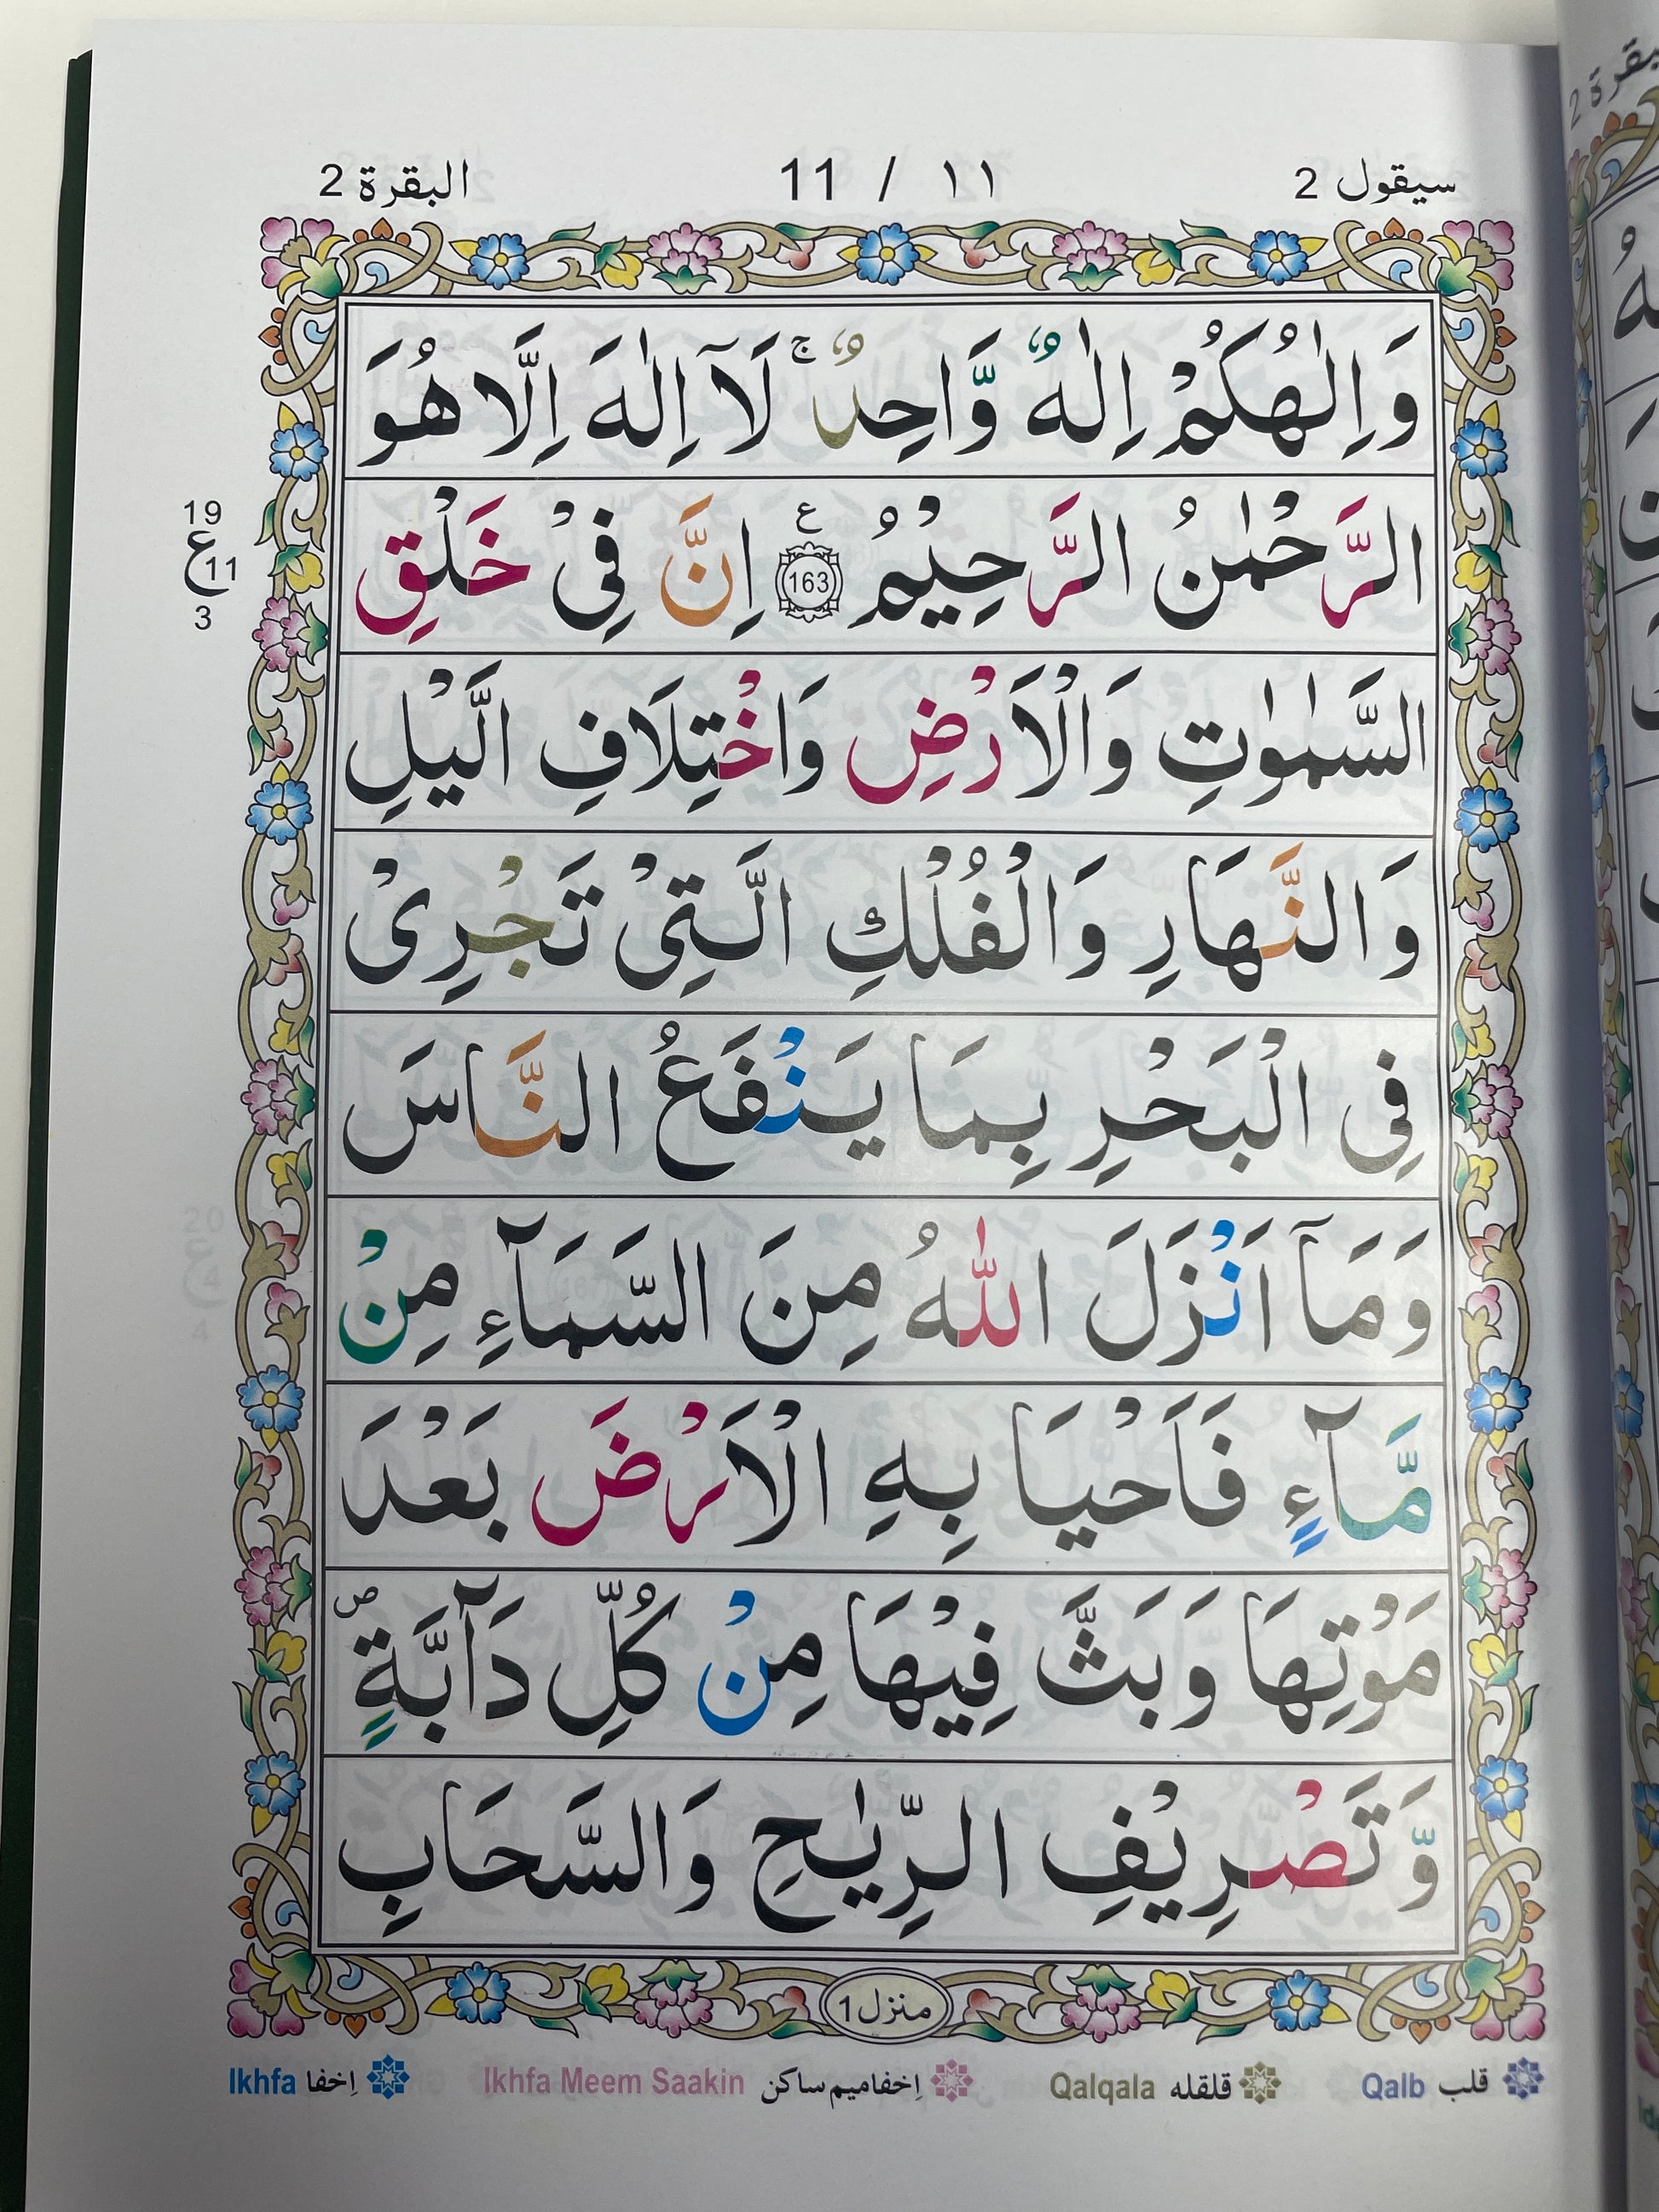 سيقول 2
11 / ١١
البقرة 2
وَاِلٰهُكُمْ اِلٰهٌ وَّاحِدٌ ۚ لَآ اِلٰهَ اِلَّا هُوَ
الرَّحْمٰنُ الرَّحِيْمُ ع 163 اِنَّ فِىْ خَلْقِ
19
ع 11
3
السَّمٰوٰتِ وَالْاَرْضِ وَاخْتِلَافِ الَّيْلِ
وَالنَّهَارِ وَالْفُلْكِ الَّتِىْ تَجْرِىْ
فِى الْبَحْرِ بِمَا يَنْفَعُ النَّاسَ
وَمَآ اَنْزَلَ اللّٰهُ مِنَ السَّمَآءِ مِنْ
مَّآءٍ فَاَحْيَا بِهِ الْاَرْضَ بَعْدَ
مَوْتِهَا وَبَثَّ فِيْهَا مِنْ كُلِّ دَآبَّةٍ ص
وَّتَصْرِيْفِ الرِّيٰحِ وَالسَّحَابِ
منزل 1
قلب Qalb
قلقله Qalqala
اِخفاميم ساكن Ikhfa Meem Saakin
اِخفا Ikhfa